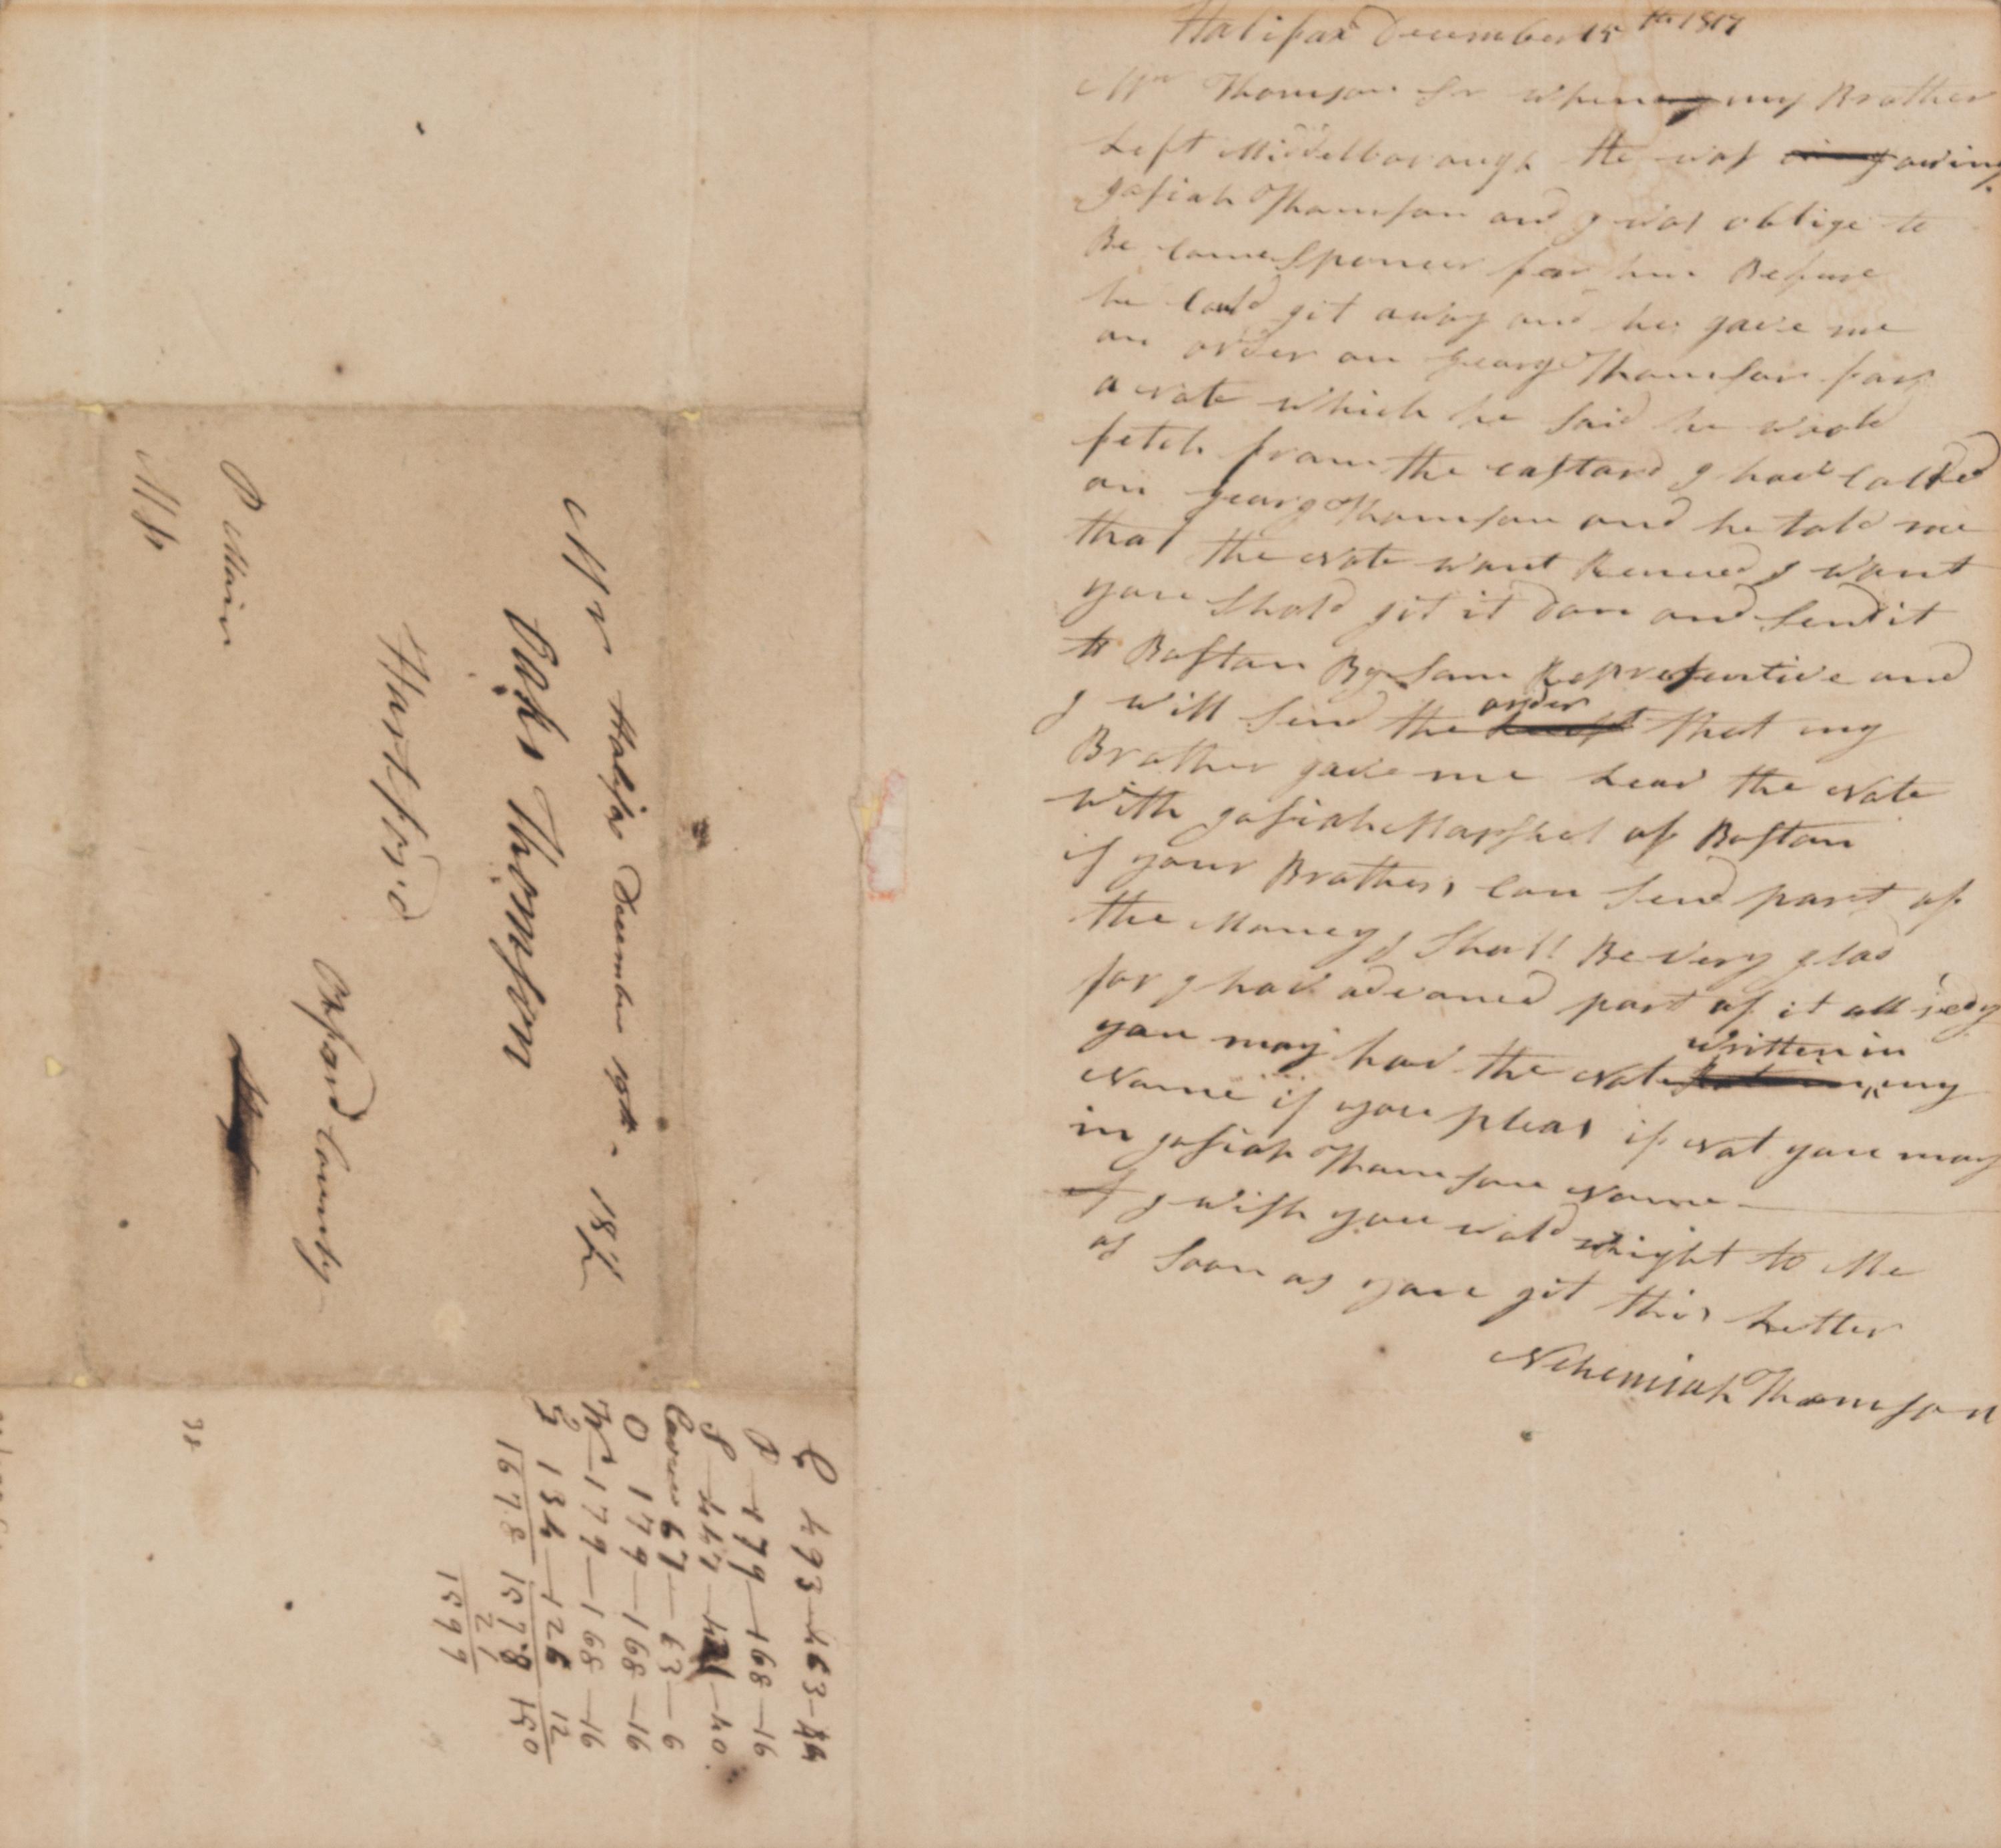 Halifax December 15th 1817
Mr Thomson Sr when my Brother
Left Middelborough He was owing
Josiah Thomson and I was oblige to
Be come Sponcer for him Before
he Could git away and he gave me
an order on Georg Thomson for
a Note which he Said he would
fetch from the eastard I have Called
on Georg Thomson and he told me
that the Note want Renued I want
you Shold git it don and Send it
to Boston By Som Representive and
I will Send the order that my
Brother gave me Leave the Note
with Josiah Marshel of Boston
if your Brothers Can Send part of
the Money I Shall Be very glad
for I have advanced part of it all redy
you may have the Note written in my
Name if you pleas if Not you may
in Josiah Thomson Name
I wish you wold wright to Me
as Soon as you git this Letter
Nehemiah Thomson
Halifax December 19th - 1817
Mr
Oaks Thompson
Hartford
Oxford County
P Main
C 493-463-44
P 179-168-16
S 447-421-40
Carver 67-63-6
O 179-168-16
179-168-16
134-126 12
1678 1578 150
21
1599